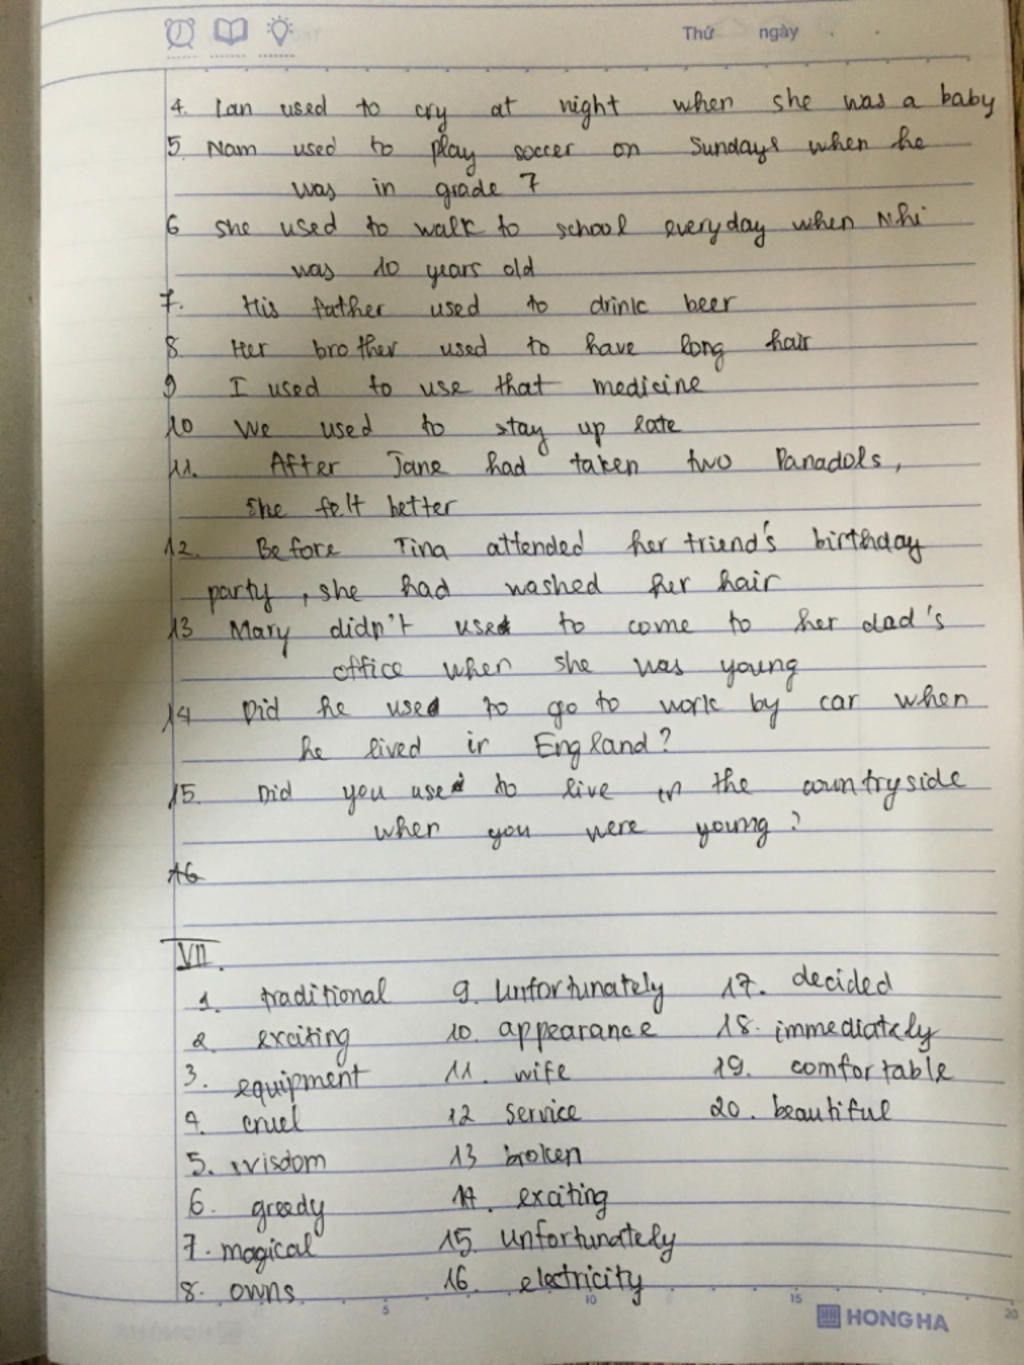 Thứ ngày
4. Lan used to cry at night when she was a baby
5. Nam used to play soccer on Sundays when he
was in grade 7
6 she used to walk to school everyday when Nhi
was 10 years old
7. His father used to drink beer
8. Her brother used to have long hair
9 I used to use that medicine
10 We used to stay up late
11. After Jane had taken two Panadols,
she felt better
12. Before Tina attended her friend's birthday
party, she had washed her hair
13 Mary didn't used to come to her dad's
office when she was young
14 Did he used to go to work by car when
he lived in England?
15. Did you used to live in the countryside
when you were young?
16
VII.
1. traditional 9. unfortunately 17. decided
2. exciting 10. appearance 18. immediately
3. equipment 11. wife 19. comfortable
4. cruel 12 service 20. beautiful
5. wisdom 13 broken
6. greedy 14. exciting
7. magical 15. unfortunately
8. owns 16. electricity
5 10 15 20
HONG HA